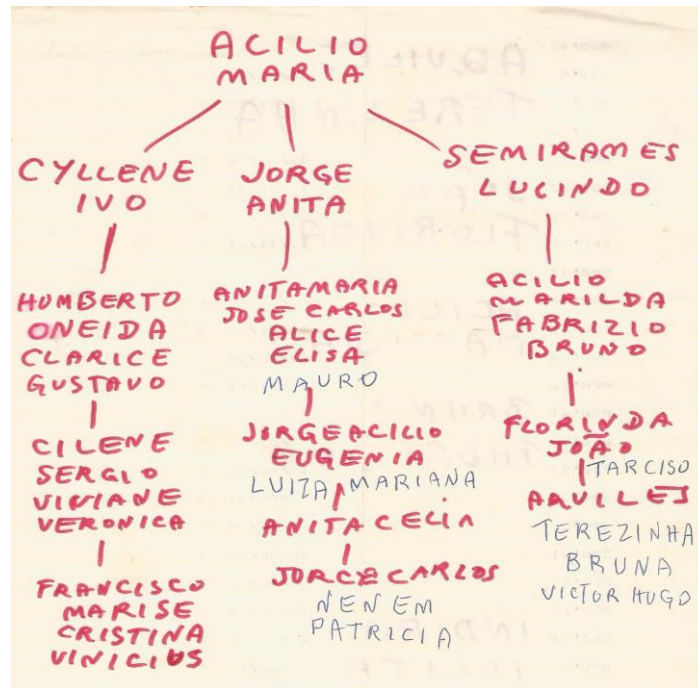 ACILIO
MARIA
CYLLENE
IVO
JORGE
ANITA
SEMIRAMES
LUCINDO
HUMBERTO
ONEIDA
CLARICE
GUSTAVO
CILENE
SERGIO
VIVIANE
VERONICA
FRANCISCO
MARISE
CRISTINA
VINICIUS
ANITAMARIA
JOSE CARLOS
ALICE
ELISA
MAURO
JORGEACILIO
EUGENIA
LUIZA MARIANA
ANITACELIA
JORGECARLOS
NENEM
PATRICIA
ACILIO
MARILDA
FABRIZIO
BRUNO
FLORINDA
JOÃO
TARCISO
AQUILES
TEREZINHA
BRUNA
VICTOR HUGO